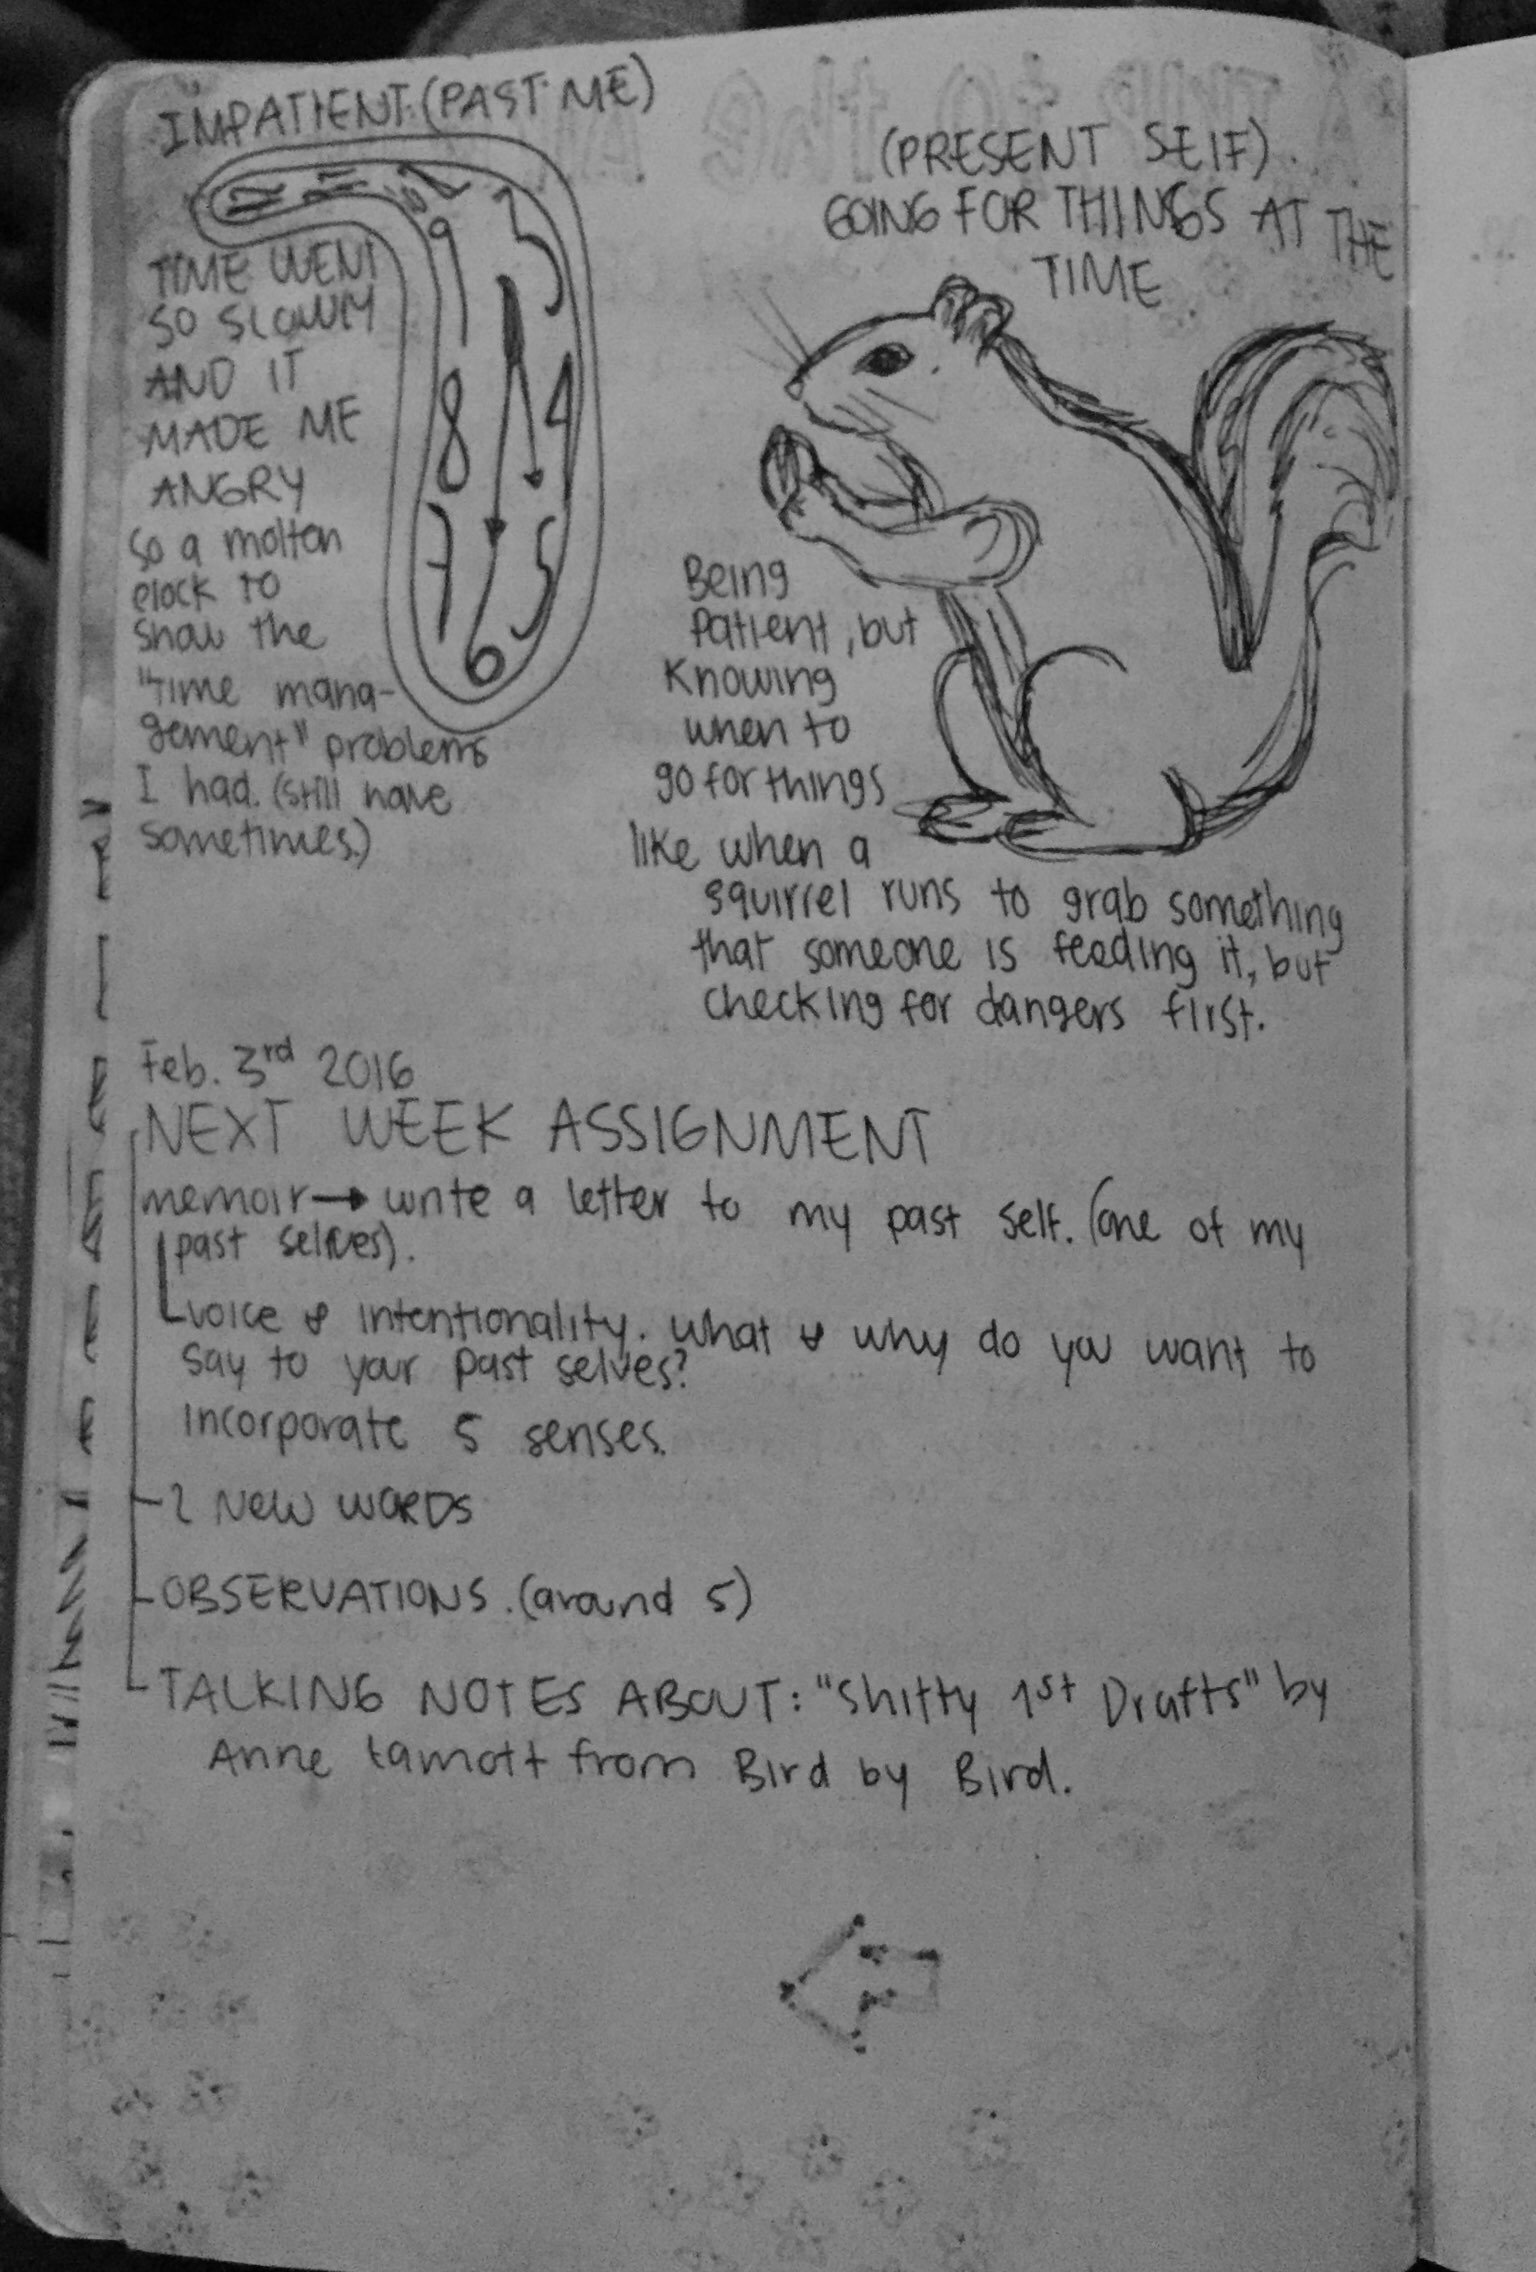 IMPATIENT (PAST ME)
TIME WENT
SO SLOWLY
AND IT
MADE ME
ANGRY
so a molten
clock to
show the
"time mana-
gement" problems
I had. (still have
sometimes.)
12
11
1
2
9
3
8
4
7
5
6
(PRESENT SELF)
GOING FOR THINGS AT THE
TIME
Being
patient, but
knowing
when to
go for things
like when a
squirrel runs to grab something
that someone is feeding it, but
checking for dangers first.
Feb. 3rd 2016
NEXT WEEK ASSIGNMENT
memoir → write a letter to my past self. (one of my
past selves).
voice & intentionality. what & why do you want to
say to your past selves?
incorporate 5 senses.
- 2 NEW WORDS
- OBSERVATIONS. (around 5)
- TALKING NOTES ABOUT: "Shitty 1st Drafts" by
Anne Lamott from Bird by Bird.